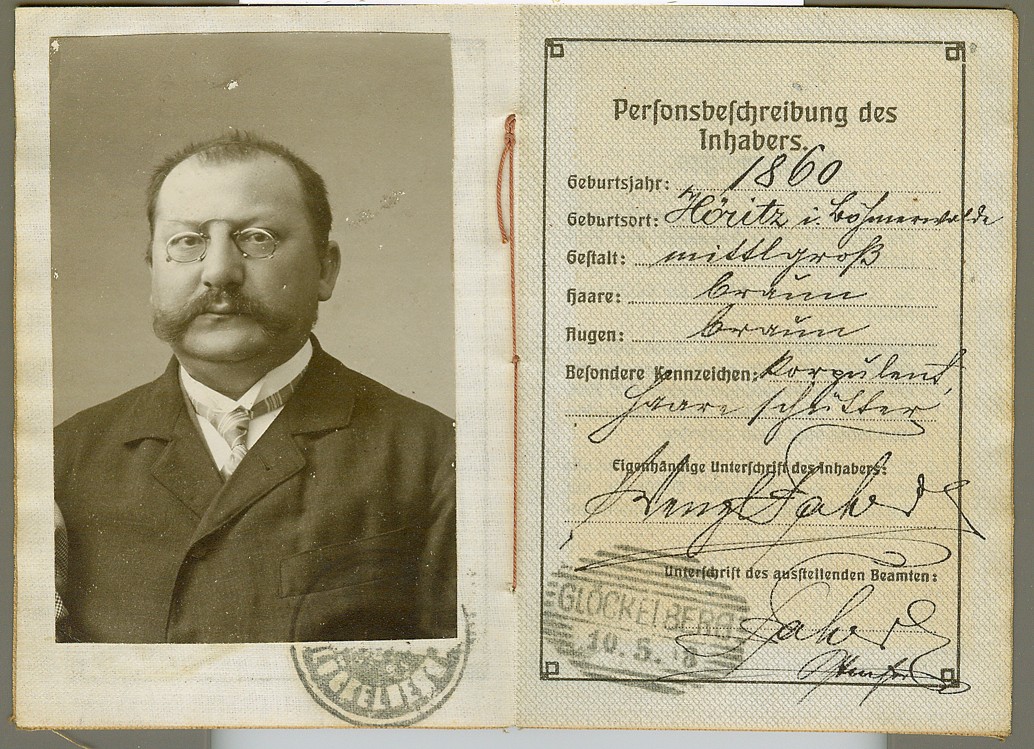 Personsbeschreibung des
Inhabers.
Geburtsjahr: 1860
Geburtsort: Höritz i. Böhmerwalde
Gestalt: mittlgroß
Haare: braun
Augen: braun
Besondere Kennzeichen: korpulent,
Haare schütter
Eigenhändige Unterschrift des Inhabers:
Wenzl
Unterschrift des ausstellenden Beamten:
GLÖCKELBERG
10. 5. 18